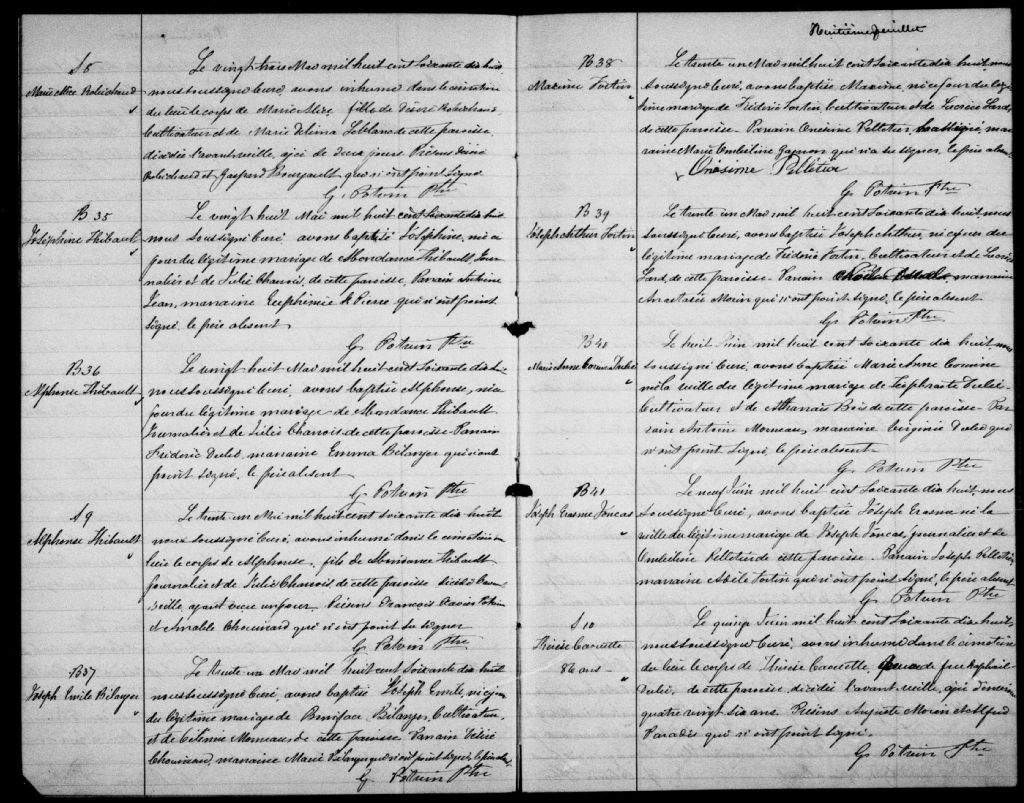 S 8
Marie Alice Robichaud
Le vingt trois Mai mil huit cent soixante dix huit
nous soussigné Curé avons inhumé dans le cimetière
du lieu le corps de Marie Alice fille de Désiré Robichaud,
Cultivateur et de Marie Delima Leblanc de cette paroisse
décédée l'avant veille, agée de deux jours Présens Désiré
Robichaud et Gaspard Bourgault qui n'ont point signé
G. Potvin Ptre
B 35
Joséphine Thibault
Le vingt huit Mai mil huit cent soixante dix huit
nous soussigné Curé avons baptisé Joséphine, née ce
jour du légitime mariage de Thibault Jour
nalier et de Julie Chanois, de cette paroisse, Parrain Antoine
Jean, marraine Euphémie St Pierre qui n'ont point
signé, le père absent
G. Potvin Ptre
B 36
Alphonse Thibault
Le vingt huit Mai mil huit cent soixante dix h
nous soussigné Curé, avons baptisé Alphonse, né ce
jour du légitime mariage de Thibault
Journalier et de Julie Chanois de cette paroisse Parrain
Fréderic Dubé, marraine Emma Bélanger qui n'ont
point signé, le père absent
G. Potvin Ptre
S 9
Alphonse Thibault
Le trente un Mai mil huit cent soixante dix huit
nous soussigné Curé, avons inhumé dans le cimetière du
lieu le corps de Alphonse, fils de Thibault
Journalier et de Julie Chanois de cette paroisse décédé l'avant
veille ayant vécu un jour. Présens François Xavier Potvin
et Amable Chouinard qui n'ont point su signer
G. Potvin Ptre
B 37
Joseph Emile Bélanger
Le trente un Mai mil huit cent soixante dix huit
nous soussigné Curé, avons baptisé Joseph Emile, né ce jour
du légitime mariage de Boniface Bélanger, Cultivateur,
et de Morneau, de cette paroisse Parrain
Chouinard, marraine Marie Bélanger qui n'ont point signé, le père absent
G. Potvin Ptre
Huitième feuillet
B 38
Maxime Fortin
Le trente un Mai mil huit cent soixante dix huit, nous
soussigné Curé, avons baptisé Maxime, né ce jour du légi
time mariage de Fréderic Fortin Cultivateur et de Lucrèce Lard,
de cette paroisse - Parrain Onésime Pelletier, mar
raine Marie Ombéline Gagnon qui n'a su signer, le père absent
Onésime Pelletier
G. Potvin Ptre
B 39
Joseph Arthur Fortin
Le trente un Mai mil huit cent soixante dix huit, nous
soussigné Curé, avons baptisé Joseph Arthur, né ce jour du
légitime mariage de Fréderic Fortin, Cultivateur et de Lucrèce
Lard, de cette paroisse - Parrain marraine
Anastasie Morin qui n'ont point signé, le père absent
G. Potvin Ptre
B 40
Marie Anne Dubé
Le huit Juin mil huit cent soixante dix huit, nous
soussigné Curé, avons baptisée Marie Anne
née la veille du légitime mariage de Dubé,
Cultivateur et de Athanaïs Bois de cette paroisse Par
rain Antoine Morneau, marraine Virginie Dubé qui
n'ont point signé, le père absent
G. Potvin Ptre
B 41
Joseph Erasme Joncas
Le neuf Juin mil huit cent soixante dix huit, nous
soussigné Curé, avons baptisé Joseph Erasme né la
veille du légitime mariage de Joseph Joncas, journalier et de
Ombéline Pelletier de cette paroisse Parrain Joseph Pelletier,
marraine Adèle Fortin qui n'ont point signé, le père absent
G. Potvin Ptre
S 10
Thérèse Caouette
86 ans
Le quinze Juin mil huit cent soixante dix huit,
nous soussigné Curé, avons inhumé dans le cimetière
du lieu le corps de Thérèse Caouette, de feu Raphaël
Dubé, de cette paroisse, décédée l'avant veille, agée d'environ
quatre vingt six ans. Présens Auguste Morin et Alfred
Paradis qui n'ont point signé.
G. Potvin Ptre